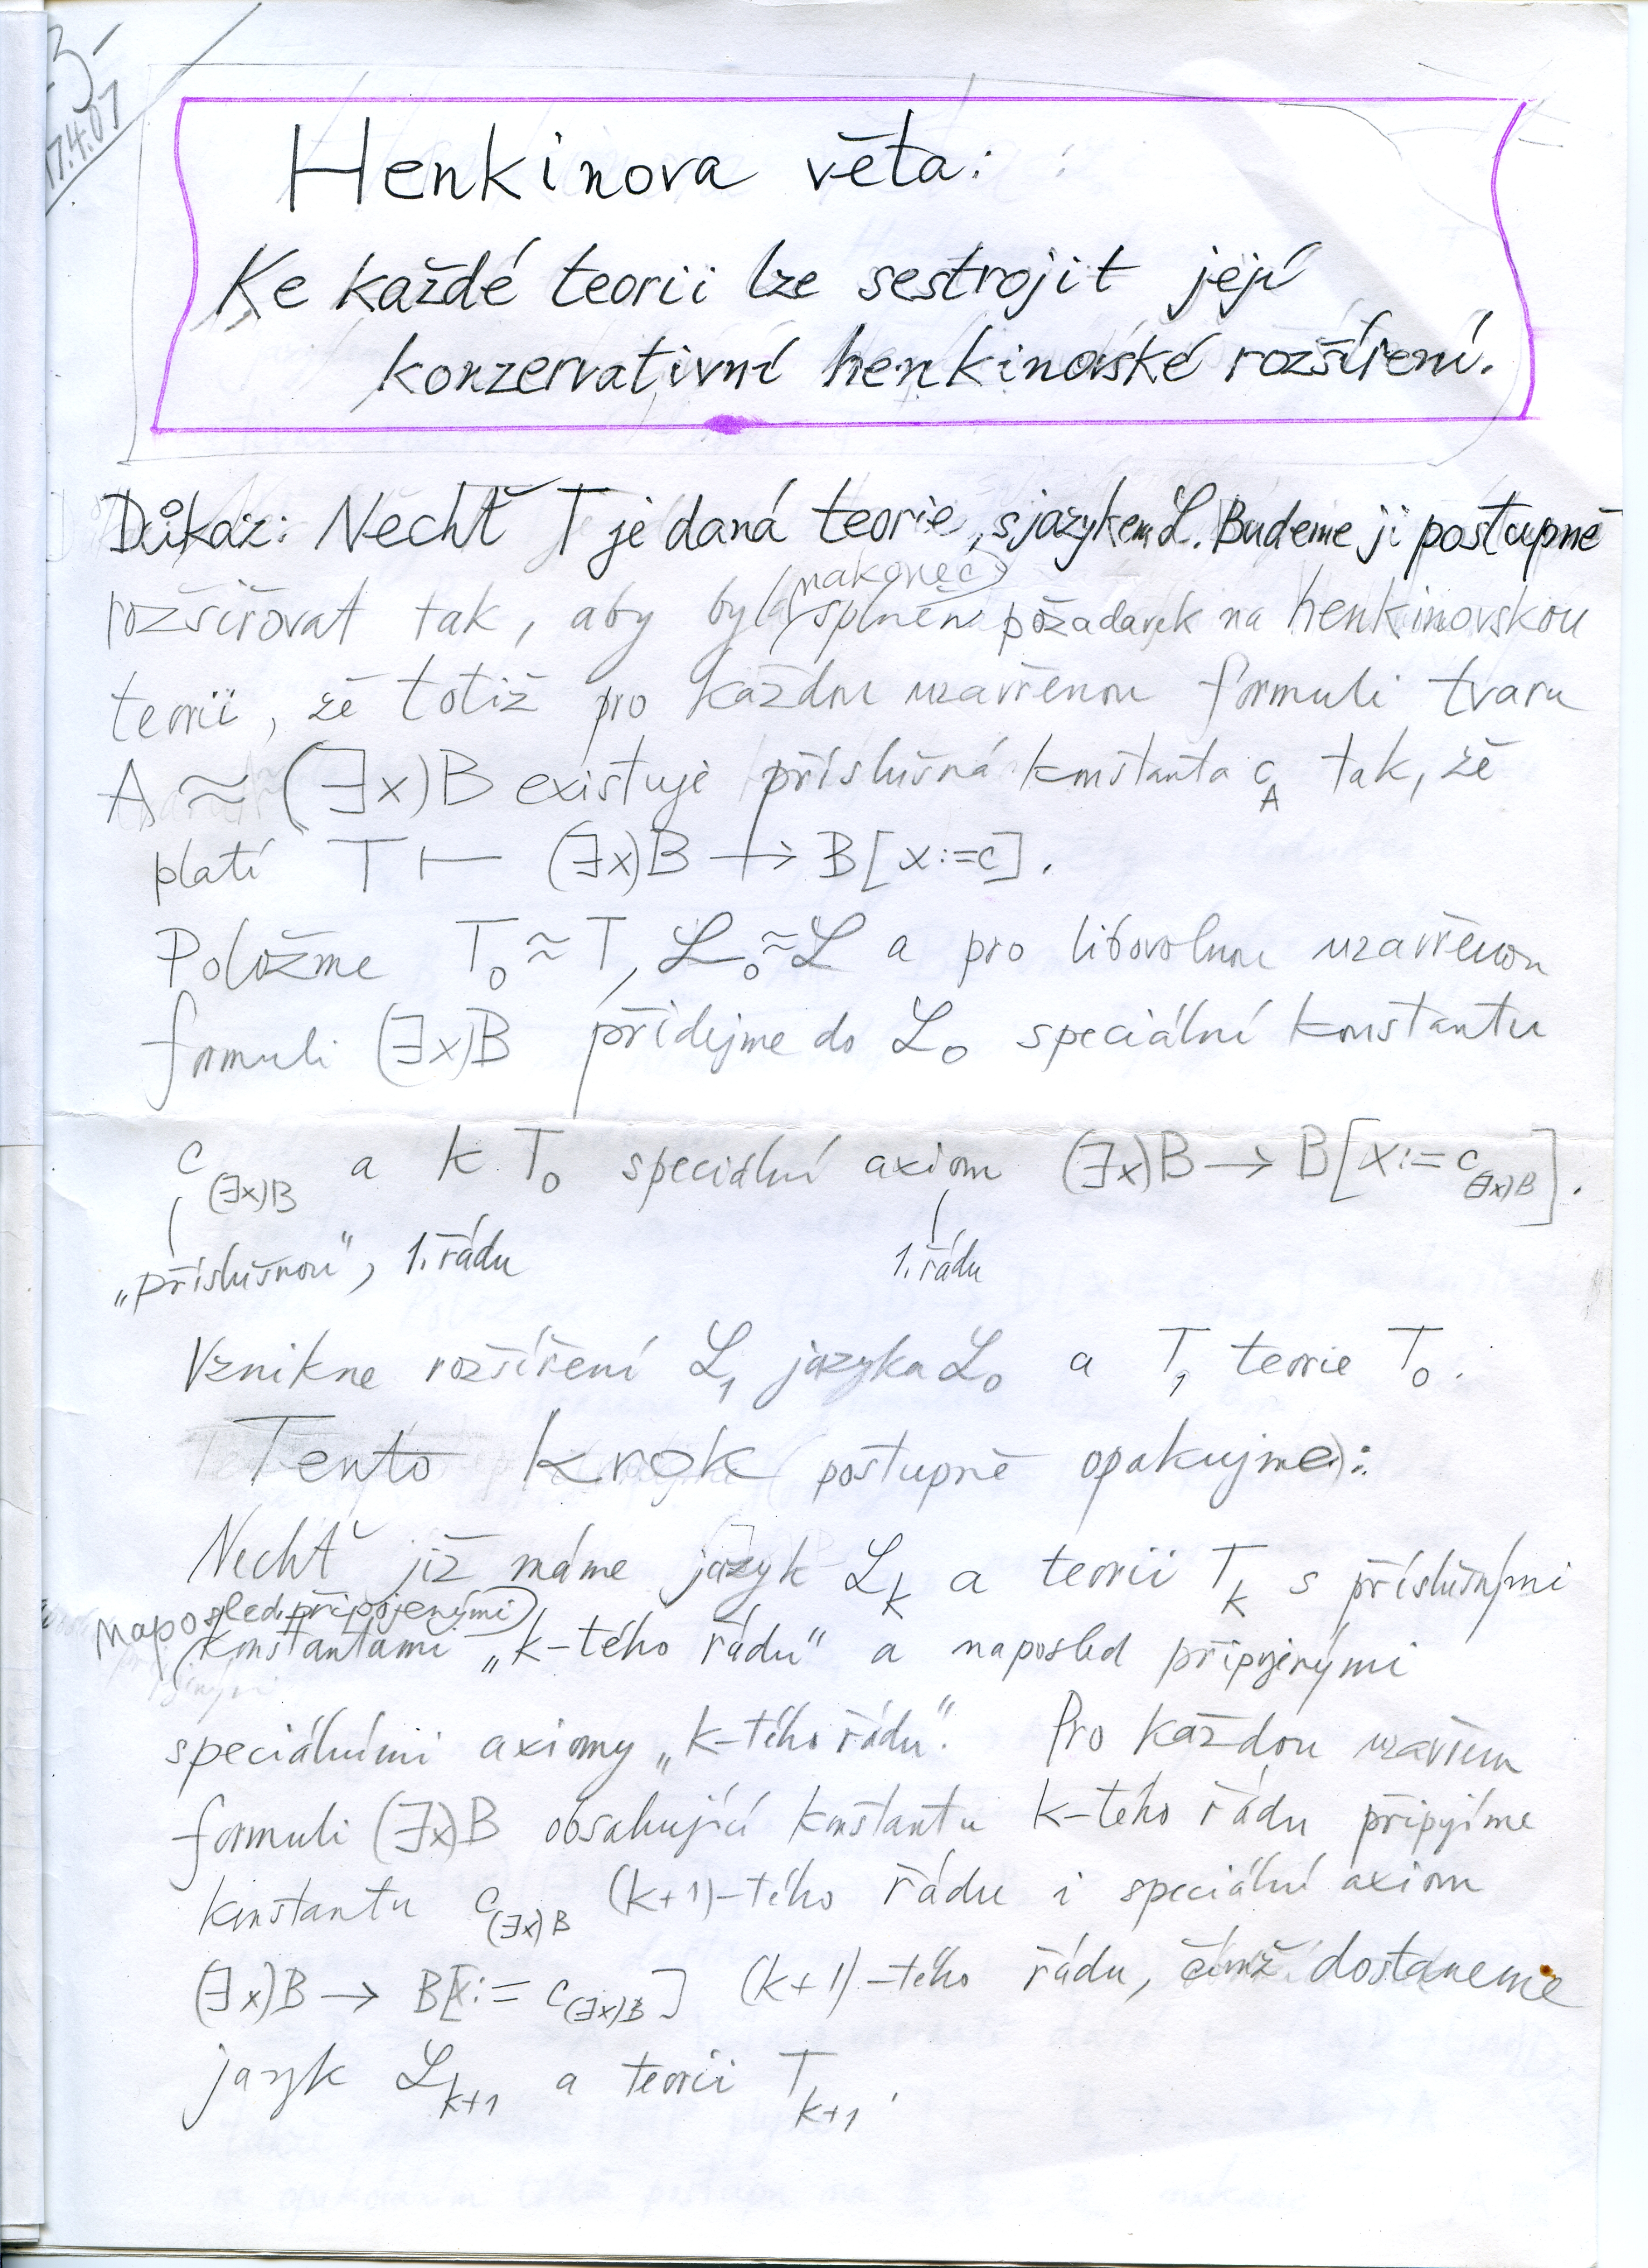 17.4.07
Henkinova věta:
Ke každé teorii lze sestrojit její
konzervativní henkinovské rozšíření.
Důkaz: Nechť T je daná teorie, s jazykem ℒ. Budeme ji postupně
nakonec
rozšiřovat tak, aby byl splněn požadavek na henkinovskou
teorii, že totiž pro každou uzavřenou formuli tvaru
A ≈ (∃x)B existuje příslušná konstanta c_A tak, že
platí T ⊢ (∃x)B → B[x:=c].
Položme T₀ ≈ T, ℒ₀ ≈ ℒ a pro libovolnou uzavřenou
formuli (∃x)B přidejme do ℒ₀ speciální konstantu
c_(∃x)B a k T₀ speciální axiom (∃x)B → B[x:=c_(∃x)B].
„příslušnou“, 1. řádu 1. řádu
Vznikne rozšíření ℒ₁ jazyka ℒ₀ a T₁ teorie T₀.
Tento krok (postupně opakujme):
Nechť již máme jazyk ℒ_k a teorii T_k s příslušnými
naposled připojenými
konstantami „k-tého řádu“ a naposled připojenými
speciálními axiomy „k-tého řádu“. Pro každou uzavřenou
formuli (∃x)B obsahující konstantu k-tého řádu připojíme
konstantu c_(∃x)B (k+1)-tého řádu i speciální axiom
(∃x)B → B[x:=c_(∃x)B] (k+1)-tého řádu, čímž dostaneme
jazyk ℒ_k+1 a teorii T_k+1.